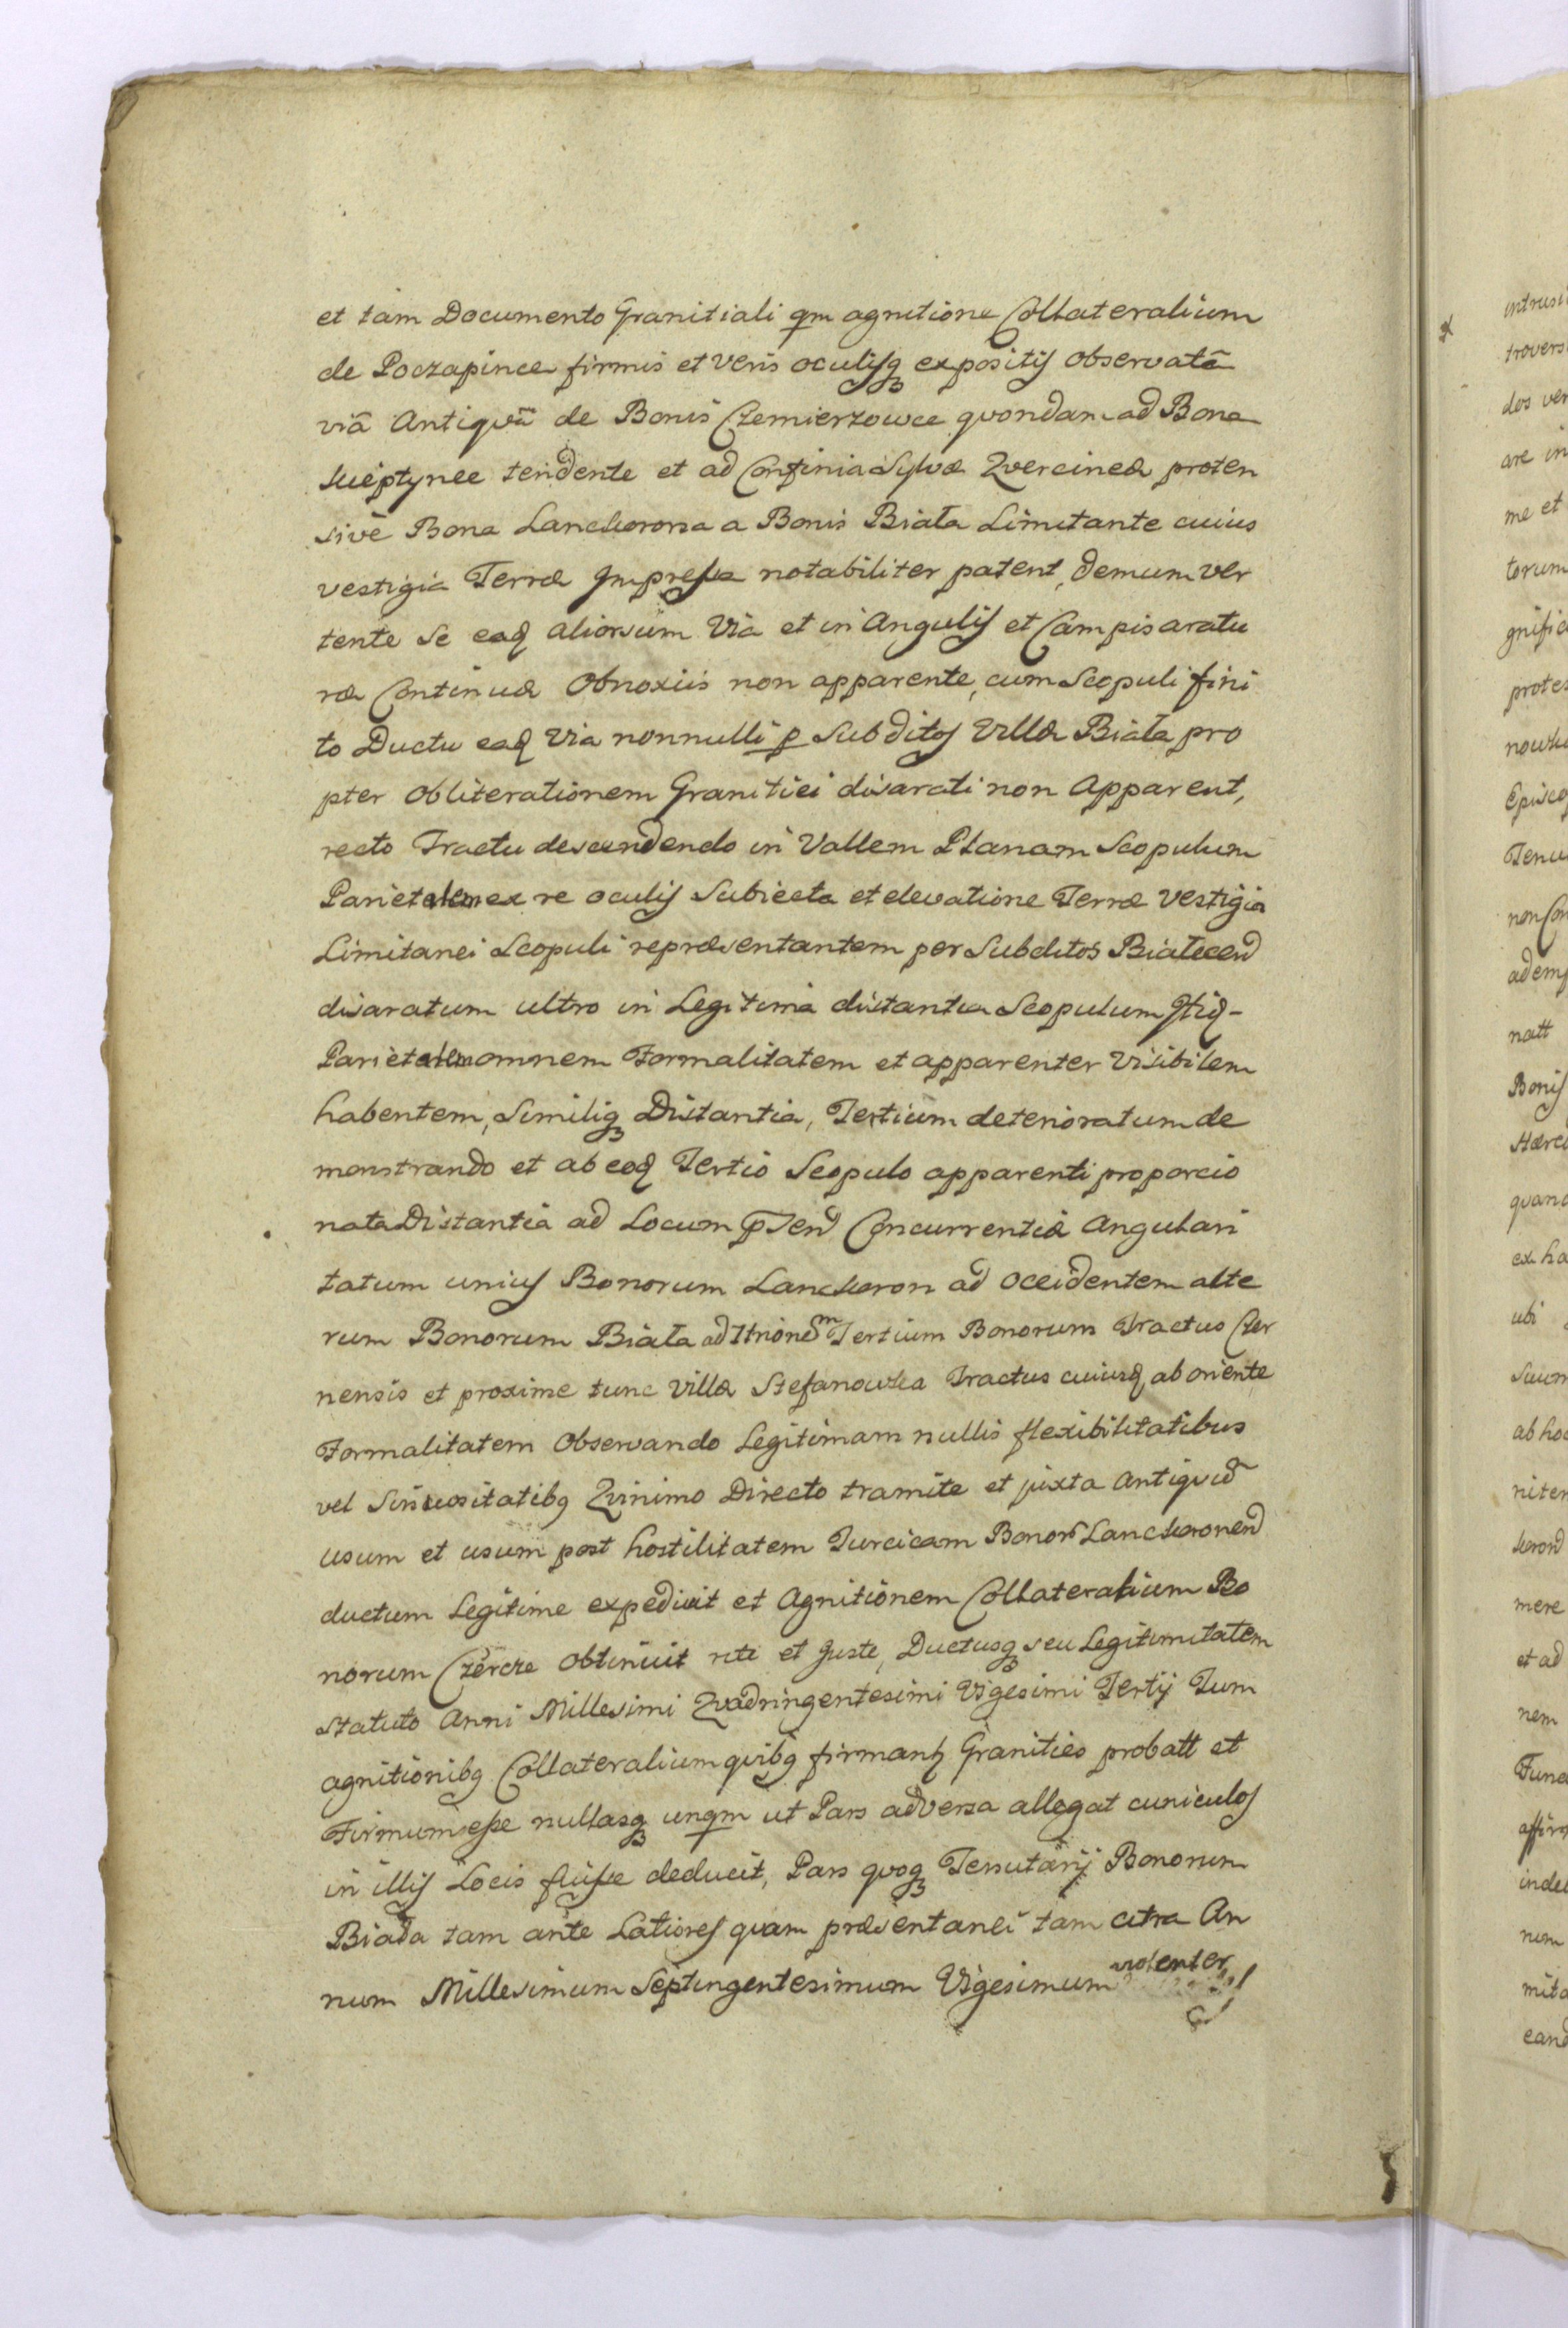 et tam Documento Granitiali qm agnitione Collateralium
de Poczapince firmis et veris oculisq expositis observatã
viã Antiqvã de Bonis Czemierzowce qvondam ad Bona
tendente et ad Confinia Sylvæ Qvercineæ proten
sive Bona Lanckorona a Bonis Biała Limitante cuius
vestigia Terræ Impressa notabiliter patent, demum ver
tente se eaq aliorsum Via et in Angulis et Campis aratu
ræ Continuæ Obnoxiis non apparente, cum Scopuli fini
to Ductu eaq Via nonnulli p Subditos Villæ Biała pro
pter Obliterationem Granitiei disarati non Apparent,
recto Tractu descendendo in Vallem Planam Scopulum
Parietalem ex re oculis Subiecta et elevatione Terræ vestigia
Limitanei Scopuli repræsentantem per Subditos Białecen
disaratum ultro in Legitima distantia Scopulum
Parietalem omnem Formalitatem et apparenter Visibilem
habentem, Similiq Distantia, Tertium deterioratum de
monstrando et ab eoq Tertio Scopulo apparenti proporcio
nata Distantia ad Locum Concurrentiæ Angulari
tatum unius Bonorum Lanckoron ad Occidentem alte
rum Bonorum Biała ad Tertium Bonorum Tractus Czer
nensis et proxime tunc Villæ Stefanowka Tractus cuiusq ab oriente
Formalitatem Observando Legitimam nullis flexibilitatibus
vel Sinuositatibq Qvinimo Directo tramite et juxta Antiqvũ
usum et usum post hostilitatem Turcicam Bonor Lanckoronen
ductum Legitime expedivit et Agnitionem Collateralium Bo
norum Czercze obtinuit rite et Juste, Ductusq seu Legitimitatem
Statuto Anni Millesimi Qvadringentesimi Vigesimi Tertij Tum
agnitionibq Collateralium qvibq firmant Granities probatt et
Firmum esse nullasq unqm ut Pars adversa allegat cuniculos
in illis Locis fuisse deducit, Pars qvoq Tenutarij Bonorum
Biała tam ante Latiores quam præsentanei tam citra An
num Millesimum Septingentesimum Vigesimum violenter